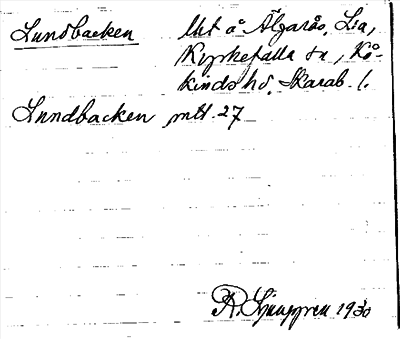 Lundbacken lht å Älgarås, Lia,
Kyrkefalla sn, Kå-
kinds hd, Skarab. l.
Lundbacken mtl. 27
R. Ljunggren 1930